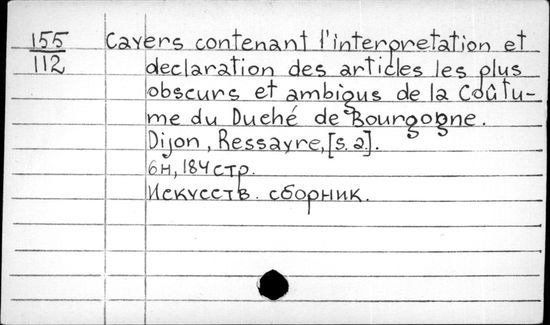 155 Cayers contenant l'interpretation et
112 declaration des articles les plus
obscurs et ambigus de la Coûtu-
me du Duché de Bourgogne.
Dijon, Ressayre, [s.a.].
6н, 184 стр.
Искусств. сборник.